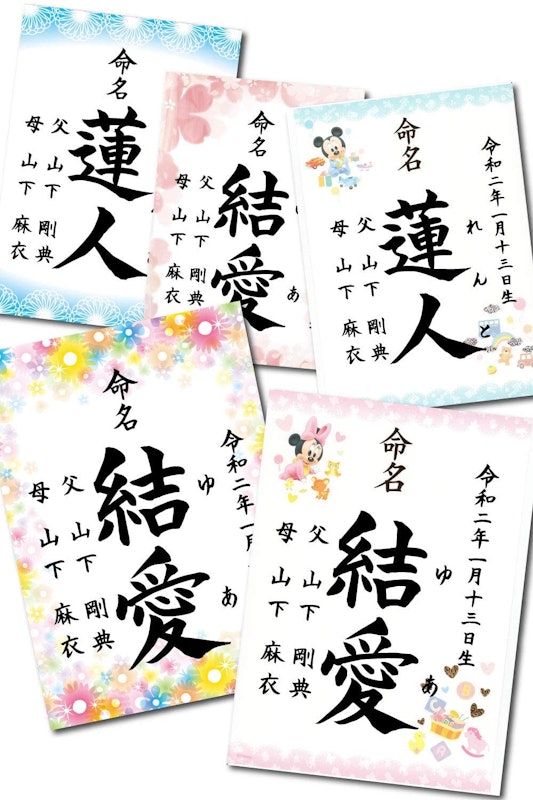 命名
蓮人
父 山下 剛典
母 山下 麻衣
命名
結愛
あ
父 山下 剛典
母 山下 麻衣
令和二年一月十三日生
命名
れんと
蓮人
父 山下 剛典
母 山下 麻衣
令和二年
命名
ゆあ
結愛
父 山下 剛典
母 山下 麻衣
令和二年一月十三日生
命名
ゆあ
結愛
父 山下 剛典
母 山下 麻衣